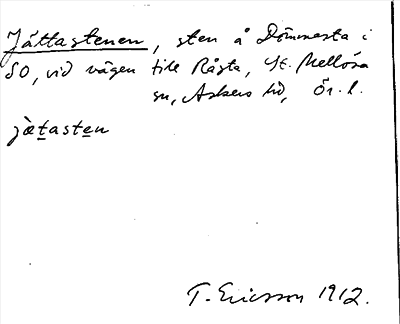 Jättastenen, sten å Dömmesta i
SO, vid vägen till Rågsta, St. Mellösa
sn, Askers hd, Ör. l.
jä̀tasten
T. Ericsson 1912.